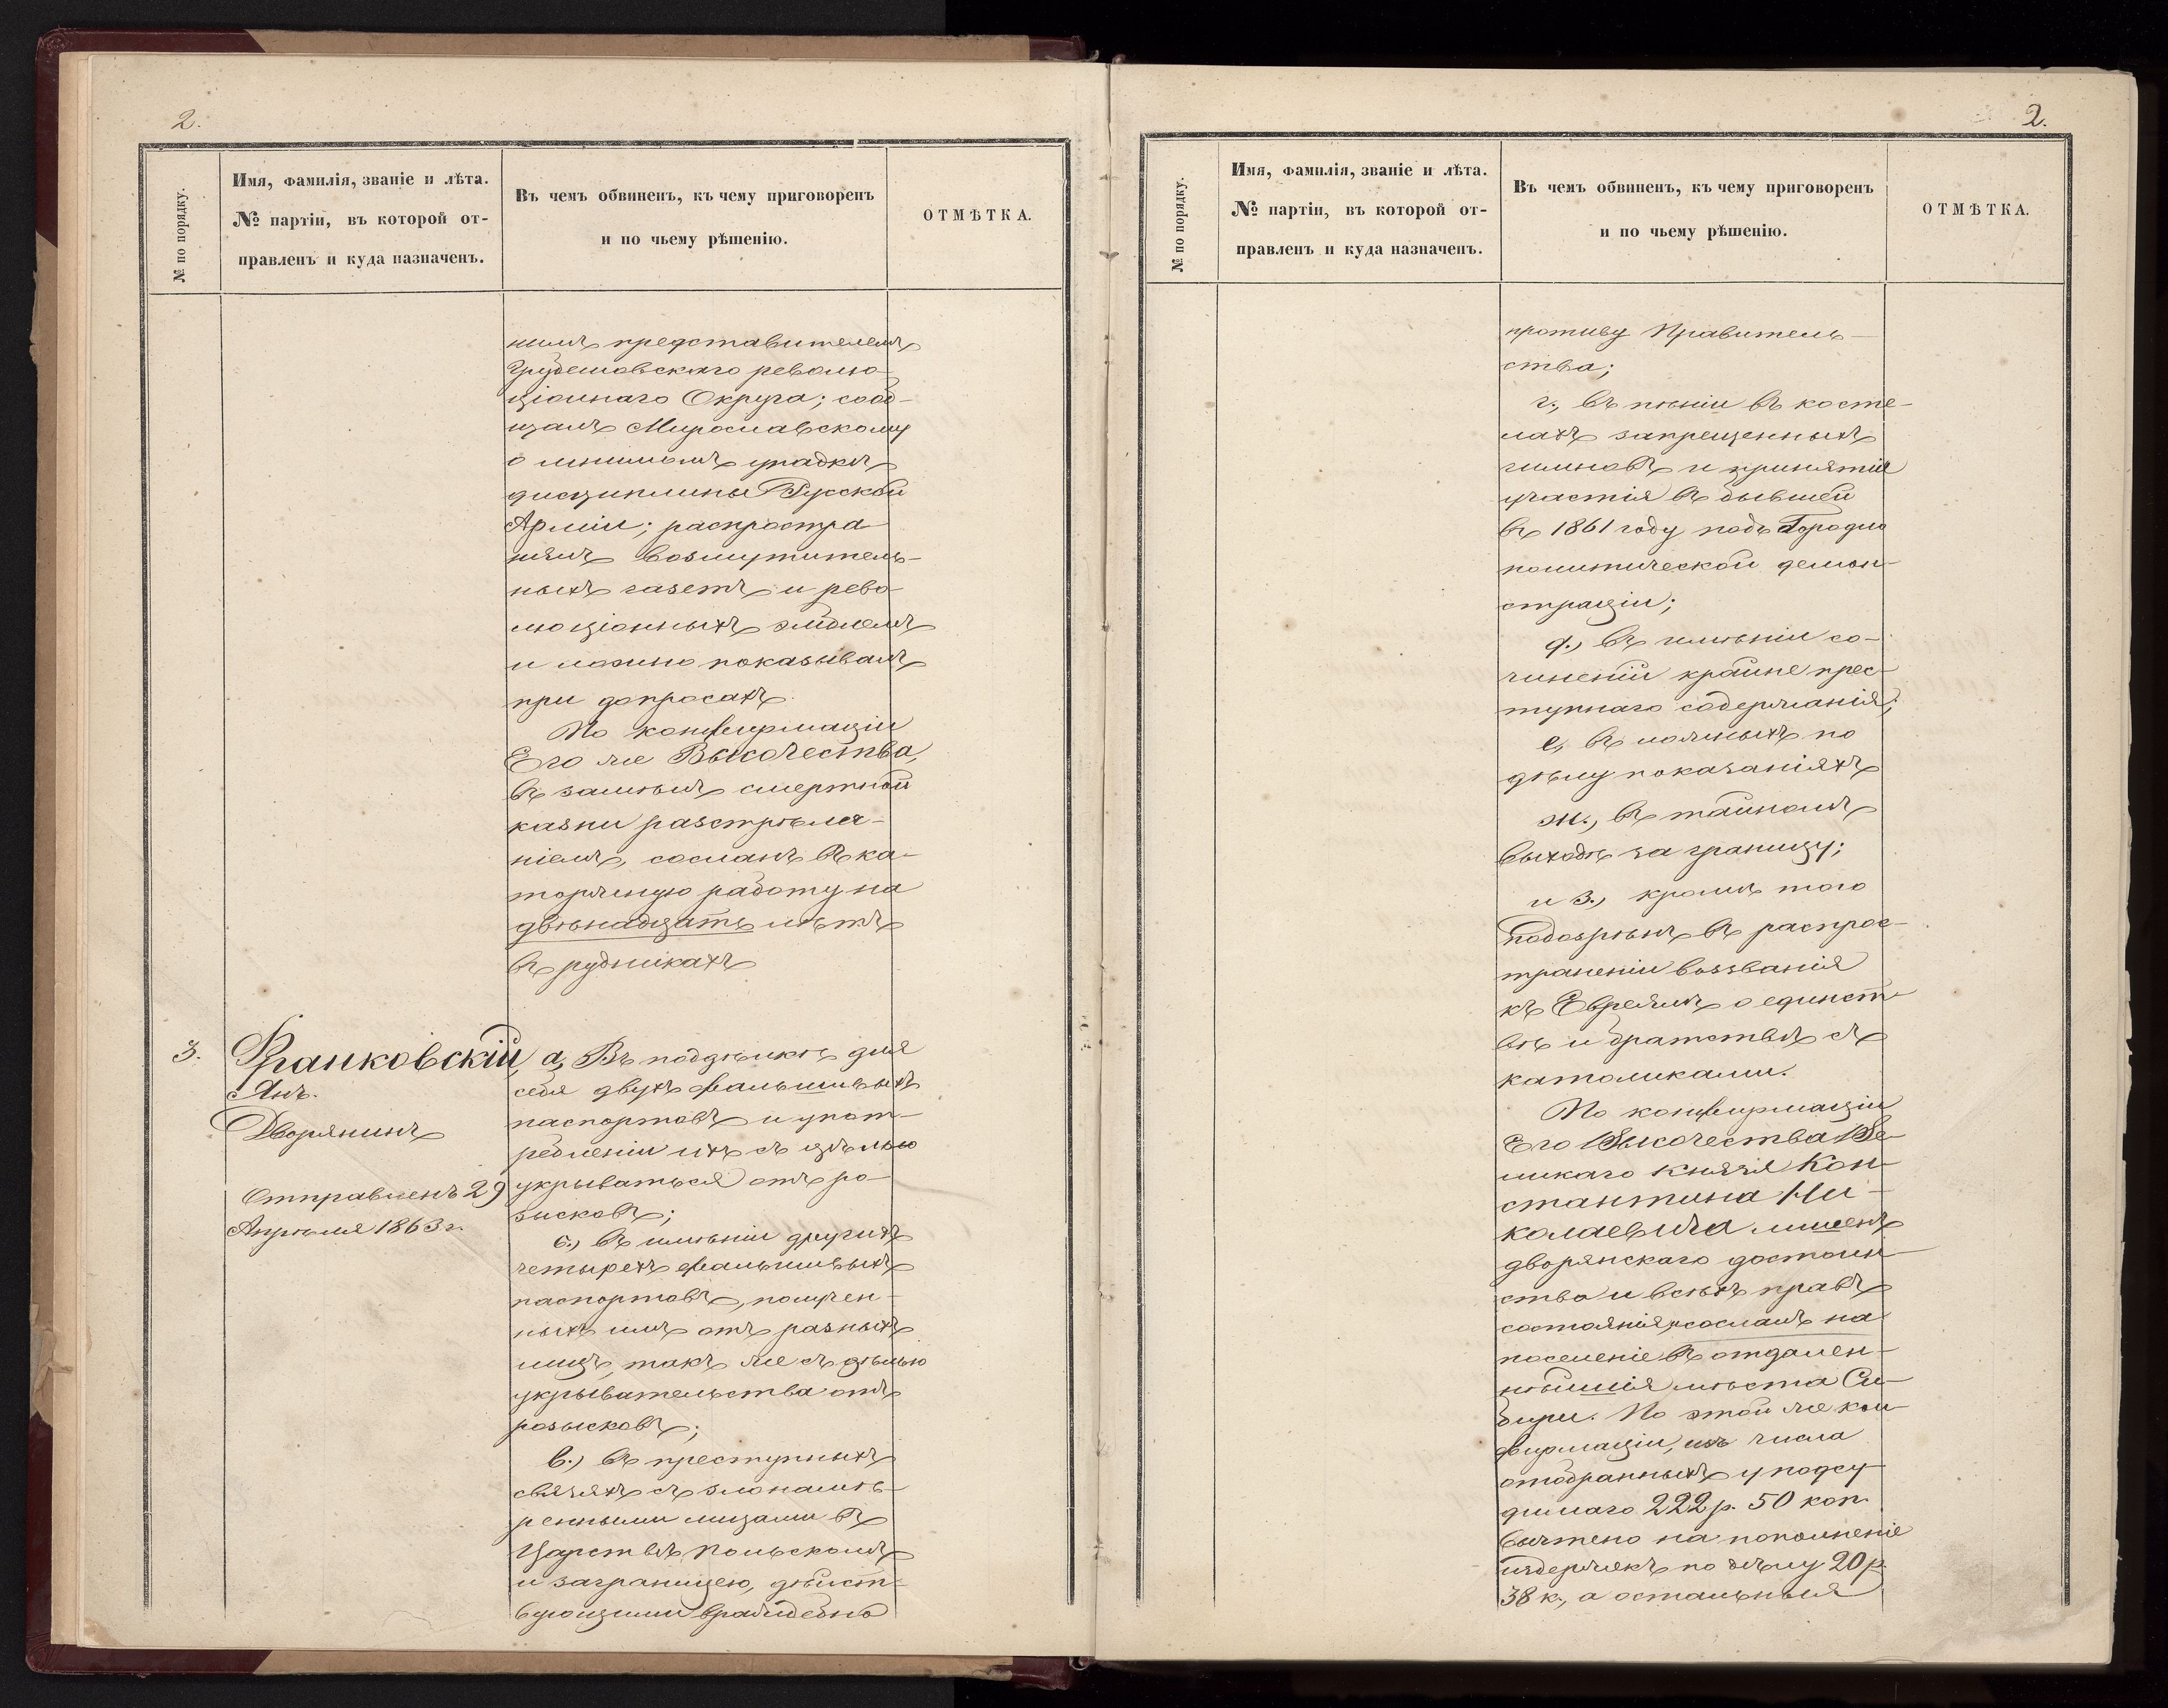 2.
№ по порядку.
Имя, фамилія, званіе и лѣта.
№ партіи, въ которой от-
правленъ и куда назначенъ.
Въ чемъ обвиненъ, къ чему приговоренъ
и по чьему рѣшенію.
ОТМѢТКА.
нимъ представителемъ
Грубешовскаго револю
ціоннаго Округа; сооб-
щалъ Мирославскому
о мнимомъ упадкѣ
дисциплины Русской
Арміи; распростра
нялъ возмутитель-
ныхъ газетъ и рево
люціонныхъ эмблемъ
и ложно показывалъ
при допросахъ.
По конфирмаціи
Его же Высочества,
въ замѣнъ смертной
казни разстрѣля-
ніемъ, сосланъ въ ка-
торжную работу на
двѣнадцать лѣтъ
въ рудникахъ
3.
Франковскій,
Янъ.
Дворянинъ
Отправленъ 29
Апрѣля 1863 г.
а, Въ поддѣлкѣ для
себя двухъ фальшивыхъ
паспортовъ и упот-
ребленіи ихъ съ цѣлью
укрываться отъ ро-
зысковъ;
б.) въ имѣніи другихъ
четырехъ фальшивыхъ
паспортовъ, получен-
ныхъ имъ отъ разныхъ
лицъ, такъ же съ цѣлью
укрывательства отъ
розысковъ;
в.) въ преступныхъ
связяхъ съ злонамѣ-
ренными лицами въ
Царствѣ Польскомъ
и заграницею, дѣйст-
вующими враждебно
2.
№ по порядку.
Имя, фамилія, званіе и лѣта.
№ партіи, въ которой от-
правленъ и куда назначенъ.
Въ чемъ обвиненъ, къ чему приговоренъ
и по чьему рѣшенію.
ОТМѢТКА.
противу Правитель-
ства;
г., въ пѣніи въ косте-
лахъ запрещенныхъ
гимновъ и принятіи
участія въ бывшей
въ 1861 году подъ Городло
политической демон-
страціи;
д., въ имѣніи со-
чиненій крайне прес-
тупнаго содержанія;
е, въ ложныхъ по
дѣлу показаніяхъ
ж., въ тайномъ
выходѣ за границу;
и з., кромѣ того
подозрѣнъ въ распрос-
траненіи воззванія
къ Евреямъ о единст-
вѣ и братствѣ съ
католиками.
По конфирмаціи
Его Высочества Ве-
ликаго Князя Кон-
стантина Ни-
колаевича лишенъ
дворянскаго достоин-
ства и всѣхъ правъ
состоянія, и сосланъ на
поселеніе въ отдален-
нѣйшія мѣста Си-
бири. По этой же кон-
фирмаціи, изъ числа
отобранныхъ у подсу
димаго 222 р. 50 коп.
вычтено на пополненіе
издержекъ по дѣлу 20 р.
38 к., а остальныя